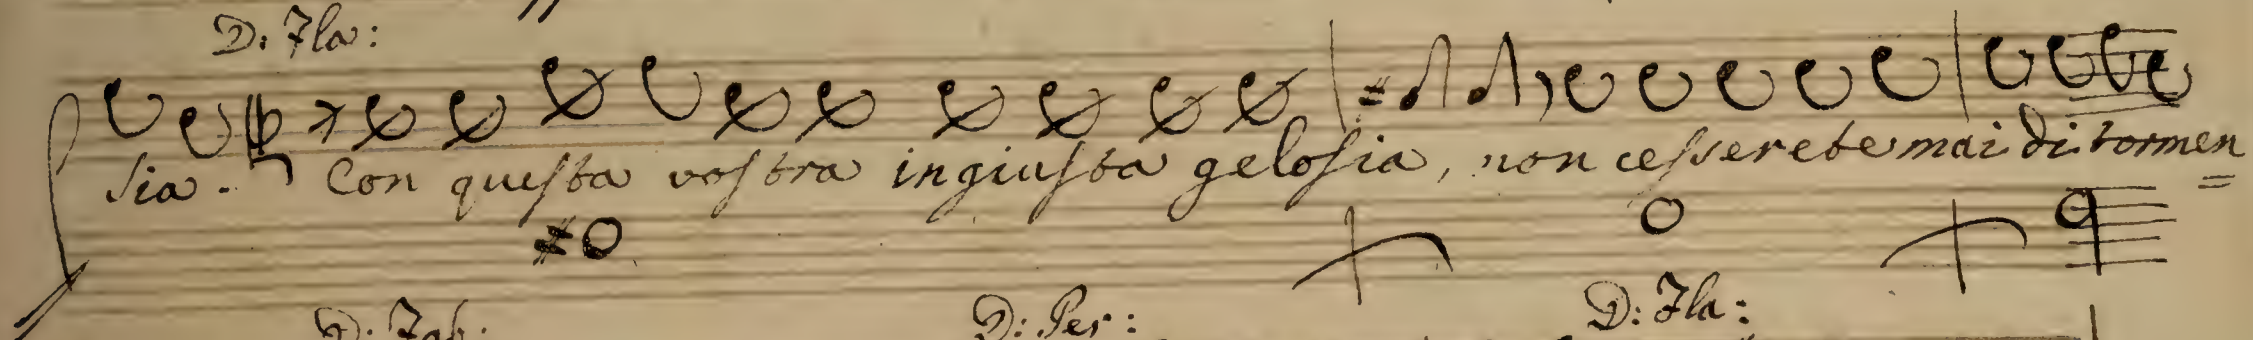 D. Fla:
sia. Con questa vostra ingiusta gelosia, non cesserete mai di tormen=
D. Fab. D: Per: D: Fla: